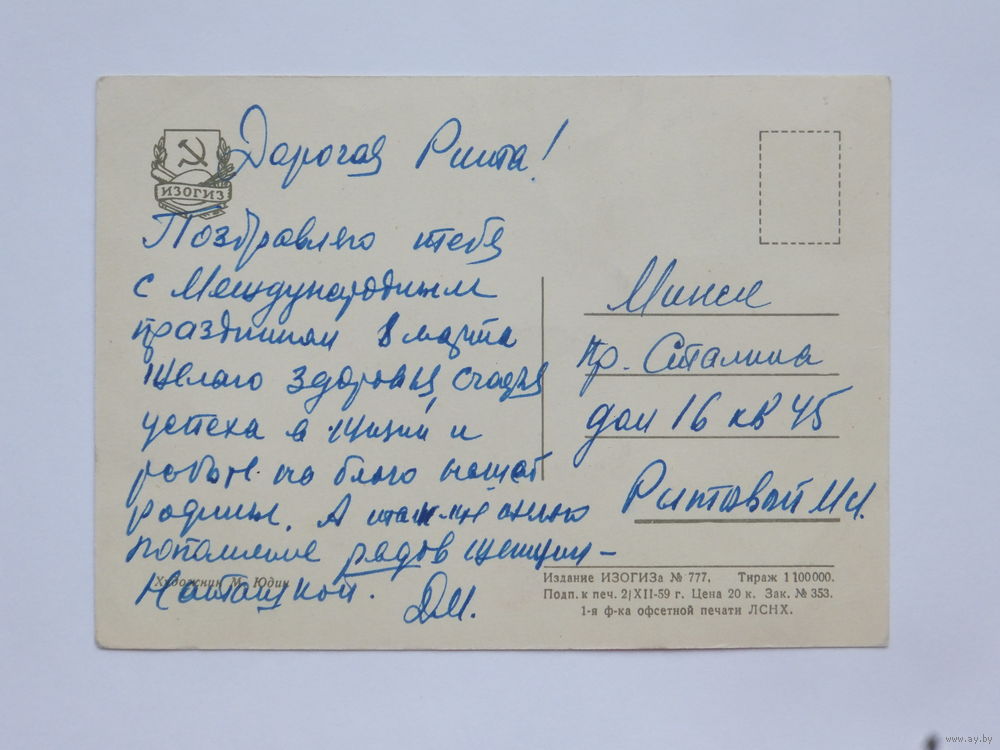 ИЗОГИЗ
Дорогая Рита!
Поздравляю тебя
с Международным
праздником 8 марта
Желаю здоровья, счастья
успеха в жизни и
работе на благо нашей
родины. А также
пополнение рядов женщин-
Наташкой. ДМ.
Художник М. Юдин
Минск
пр. Сталина
дом 16 кв 45
М.И.
Издание ИЗОГИЗа № 777. Тираж 1 100000.
Подп. к печ. 2/XII-59 г. Цена 20 к. Зак. № 353.
1-я ф-ка офсетной печати ЛСНХ.
www.ay.by